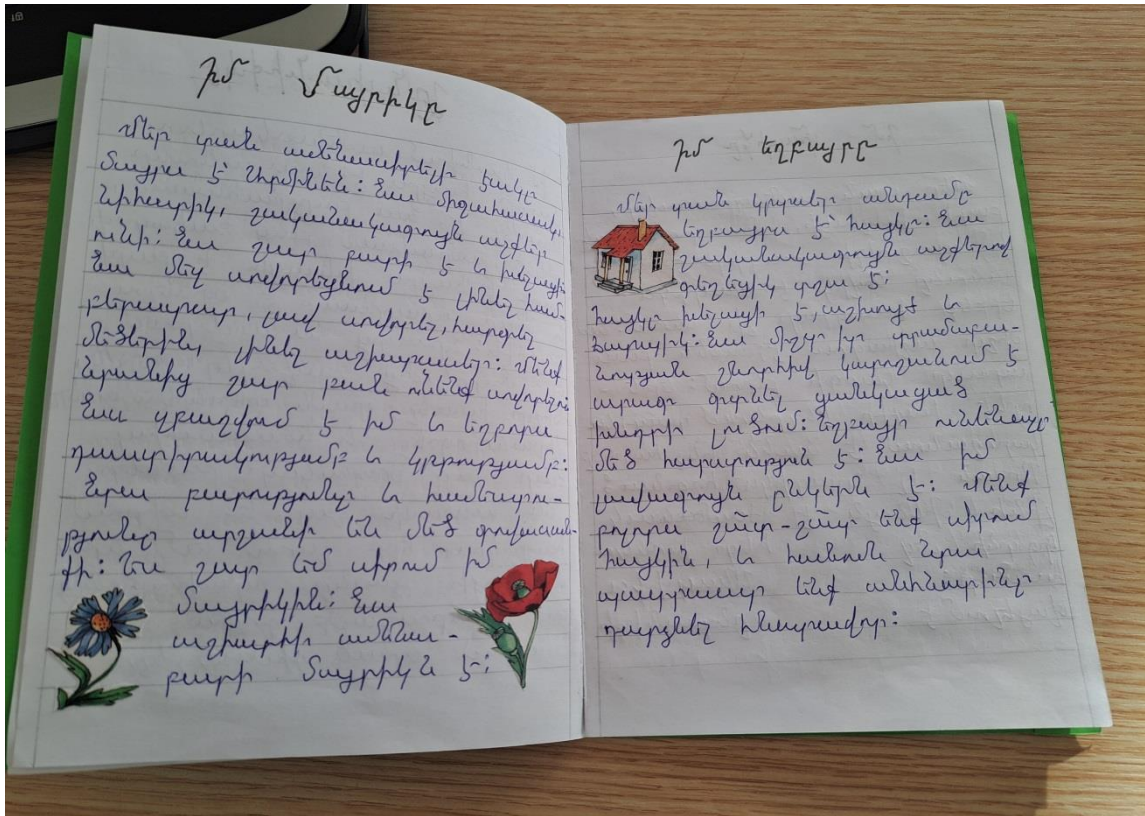 Իմ Մայրիկը
Մեր տան ամենասիրելի էակը
մայրս է՝ Արմինեն: Նա միջահասակ,
նիհարիկ, շականակագույն աչքեր
ունի: Նա շատ բարի է և խելացի:
Նա մեզ սովորեցնում է լինել համ-
բերատար, լավ սովորել, հարգել
մեծերին, լինել աշխատասեր: Մենք
նրանից շատ բան ունենք սովորելու
Նա զբաղվում է իմ և եղբորս
դաստիրակությամբ և կրթությամբ:
Նրա բարությունը և համեստու-
թյունը արժանի են մեծ գովասան-
քի: Ես շատ եմ սիրում իմ
մայրիկին: Նա
աշխարհի ամենա-
բարի մայրիկն է:
Իմ եղբայրը
Մեր տան կրտսեր անդամը
եղբայրս է՝ Հայկը: Նա
շականակագույն աչքերով
գեղեցիկ տղա է:
Հայկը խելացի է, աշխույժ և
ճարպիկ: Նա միշտ իր տրամաբա-
նության շնորհիվ կարողանում է
արագ գտնել ցանկացած
խնդրի լուծում: Եղբայր ունենալը
մեծ հպարտություն է: Նա իմ
լավագույն ընկերն է: Մենք
բոլորս շա՜տ-շա՜տ ենք սիրում
Հայկին, և հանուն նրա
պատրաստ ենք անհնարինը
դարձնել հնարավոր: